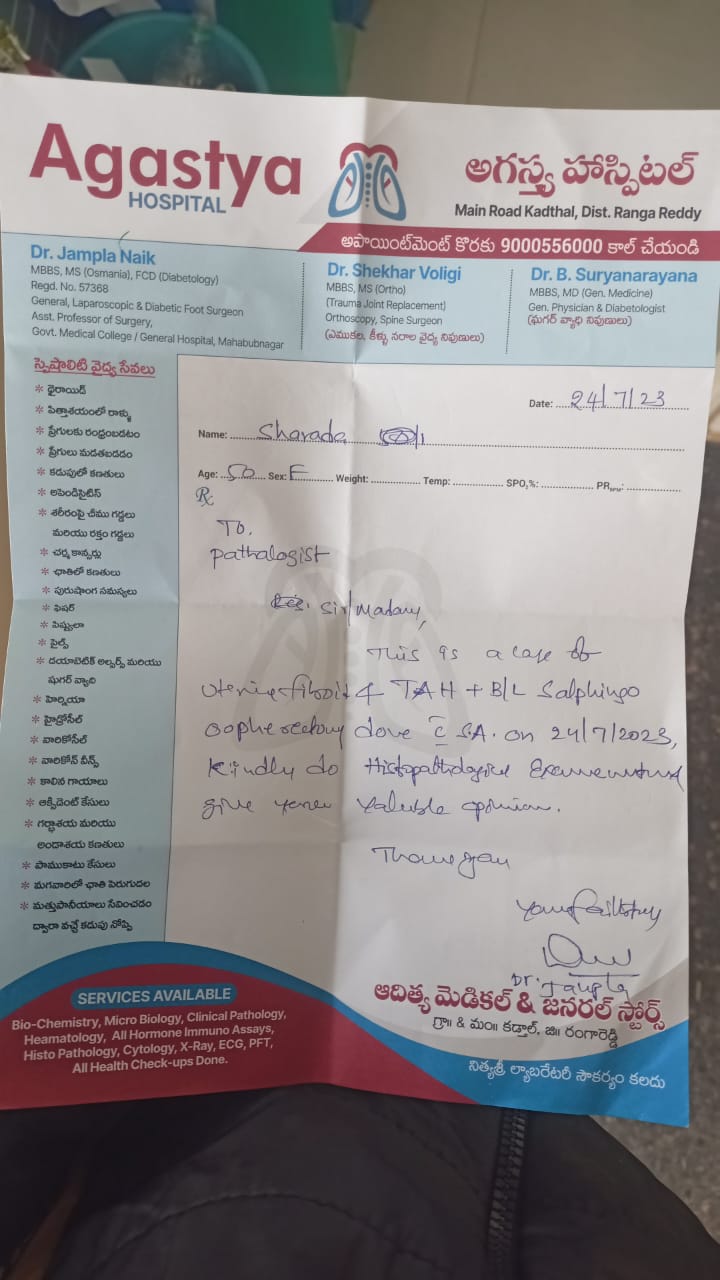 Agastya
HOSPITAL
అగస్త్య హాస్పిటల్
Main Road Kadthal, Dist. Ranga Reddy
అపాయింట్‌మెంట్ కొరకు 9000556000 కాల్ చేయండి
Dr. Jampla Naik
MBBS, MS (Osmania), FCD (Diabetology)
Regd. No. 57368
General, Laparoscopic & Diabetic Foot Surgeon
Asst. Professor of Surgery,
Govt. Medical College / General Hospital, Mahabubnagar
Dr. Shekhar Voligi
MBBS, MS (Ortho)
(Trauma Joint Replacement)
Orthoscopy, Spine Surgeon
(ఎముకలు, కీళ్ళు నరాల వైద్య నిపుణులు)
Dr. B. Suryanarayana
MBBS, MD (Gen. Medicine)
Gen. Physician & Diabetologist
(షుగర్ వ్యాధి నిపుణులు)
స్పెషాలిటి వైద్య సేవలు
* థైరాయిడ్
* పిత్తాశయంలో రాళ్ళు
* ప్రేగులకు రంధ్రంబడటం
* ప్రేగులు మడతబడడం
* కడుపులో కణతులు
* అపెండిసైటిస్
* శరీరంపై చీము గడ్డలు
మరియు రక్తం గడ్డలు
* చర్మ కాన్సర్లు
* ఛాతిలో కణతులు
* పురుషాంగ సమస్యలు
* ఫిషర్
* ఫిస్టులా
* పైల్స్
* డయాబెటిక్ అల్సర్స్ మరియు
షుగర్ వ్యాధి
* హెర్నియా
* హైడ్రోసీల్
* వారికోసీల్
* వారికోస్ వీన్స్
* కాలిన గాయాలు
* ఆక్సిడెంట్ కేసులు
* గర్భాశయ మరియు
అండాశయ కణతులు
* పాముకాటు కేసులు
* మగవారిలో ఛాతి పెరుగుదల
* మత్తుపానీయాలు సేవించడం
ద్వారా వచ్చే కడుపు నోప్పి
Date: 24/7/23
Name: Sharada
Age: 50 Sex: F Weight: Temp: SPO₂%: PR BPM:
Rx
To,
pathalogist
Sir/Madam,
This is a case of
Uterine fibroid & TAH + B/L Salphingo
oopherectomy done c̄ S.A. on 24/7/2023,
Kindly do Histopathological
give your valuble opinion.
Yours
Dr. Jampla
ఆదిత్య మెడికల్ & జనరల్ స్టోర్స్
గ్రా॥ & మం॥ కడ్తాల్, జి॥ రంగారెడ్డి
నిత్యశ్రీ ల్యాబరేటరీ సౌకర్యం కలదు
SERVICES AVAILABLE
Bio-Chemistry, Micro Biology, Clinical Pathology,
Heamatology, All Hormone Immuno Assays,
Histo Pathology, Cytology, X-Ray, ECG, PFT,
All Health Check-ups Done.